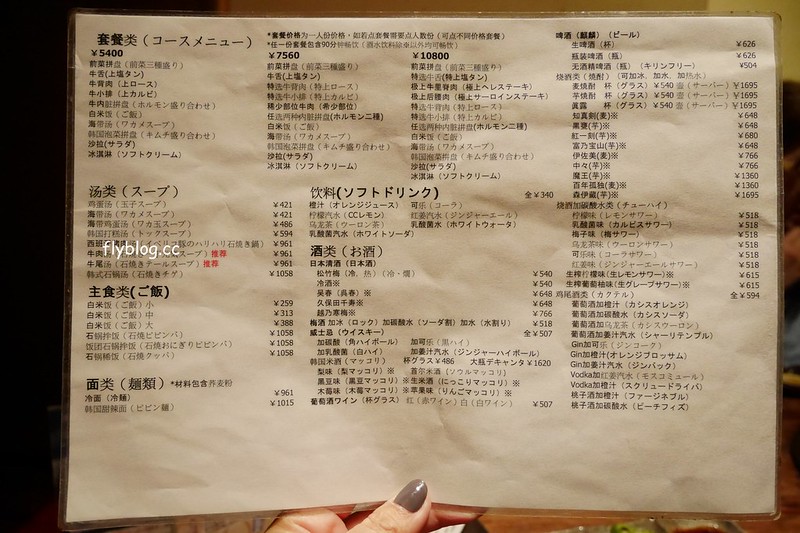 套餐类（コースメニュー）
*套餐价格为一人份价格、如若点套餐需要点人数份（可点不同价格套餐）
*任一份套餐包含90分钟畅饮（酒水饮料除※以外均可畅饮）
￥5400
前菜拼盘（前菜三種盛り）
牛舌(上塩タン)
牛背肉（上ロース）
牛小排（上カルビ）
牛内脏拼盘（ホルモン盛り合わせ）
白米饭（ご飯）
海带汤（ワカメスープ）
韩国泡菜拼盘（キムチ盛り合わせ）
沙拉(サラダ)
冰淇淋（ソフトクリーム）
￥7560
前菜拼盘（前菜三種盛り）
牛舌(上塩タン)
特选牛背肉（特上ロース）
特选牛小排（特上カルビ）
稀少部位牛肉（希少部位）
任选两种内脏拼盘(ホルモン二種)
白米饭（ご飯）
海带汤（ワカメスープ）
韩国泡菜拼盘（キムチ盛り合わせ）
沙拉(サラダ)
冰淇淋（ソフトクリーム）
￥10800
前菜拼盘（前菜三種盛り）
特选牛舌（特上塩タン）
极上牛里脊肉（極上ヘレステーキ）
极上后腰肉（極上サーロインステーキ）
特选牛背肉（特上ロース）
特选牛小排（特上カルビ）
任选两种内脏拼盘(ホルモン二種)
白米饭（ご飯）
海带汤（ワカメスープ）
韩国泡菜拼盘（キムチ盛り合わせ）
沙拉(サラダ)
冰淇淋（ソフトクリーム）
汤类（スープ）
鸡蛋汤（玉子スープ） ￥421
海带汤（ワカメスープ） ￥421
海带鸡蛋汤（ワカ玉スープ） ￥486
韩国打糕汤（トックスープ） ￥594
豚のハリハリ石焼き鍋） ￥961
推荐 ￥961
牛尾汤（石焼きテールスープ）推荐 ￥961
韩式石锅汤（石焼きチゲ） ￥1058
主食类(ご飯)
白米饭（ご飯）小 ￥259
白米饭（ご飯）中 ￥313
白米饭（ご飯）大 ￥388
石锅拌饭（石焼ビビンバ） ￥1058
饭团石锅拌饭（石焼おにぎりビビンバ） ￥1058
石锅稀饭（石焼クッパ） ￥1058
面类（麺類）*材料包含荞麦粉
冷面（冷麺） ￥961
韩国甜辣面（ビビン麺） ￥1015
饮料(ソフトドリンク) 全￥340
橙汁（オレンジジュース） 可乐（コーラ）
柠檬汽水（CCレモン） 红姜汽水（ジンジャーエール）
乌龙茶（ウーロン茶） 乳酸菌汽水（ホワイトソーダ）
乳酸菌水（ホワイトウォータ）
酒类（お酒）
日本清酒（日本酒）
松竹梅（冷、热）（冷・燗） ￥540
冷酒※ ￥540
吴春（呉春）※ ￥648
久保田千寿※ ￥648
越乃寒梅※ ￥766
梅酒 加冰（ロック）加碳酸水（ソーダ割）加水（水割り） ￥518
威士忌（ウイスキー） 全￥507
加碳酸（角ハイボール） 加可乐（黒ハイ）
加乳酸菌（白ハイ） 加姜汁汽水（ジンジャーハイボール）
韩国米酒（マッコリ） 杯グラス￥486 大瓶デキャンタ￥1620
梨味（梨マッコリ）※ 首尔米酒（ソウルマッコリ）
黑豆味（黒豆マッコリ）※生米酒（にっこりマッコリ）※
木莓味（木莓マッコリ）※苹果味（りんごマッコリ）※
葡萄酒ワイン（杯グラス） 红（赤ワイン）白（白ワイン） ￥507
啤酒（麒麟）（ビール）
生啤酒（杯） ￥626
瓶装啤酒（瓶） ￥626
无酒精啤酒（瓶）（キリンフリー） ￥504
烧酒类（焼酎）（可加冰、加水、加热水）
麦烧酎 杯（グラス）￥540 壶（サーバー）￥1695
芋烧酎 杯（グラス）￥540 壶（サーバー）￥1695
眞露 杯（グラス）￥540 壶（サーバー）￥1695
知真剣(麦)※ ￥648
黒甕(芋)※ ￥648
紅一刻(芋)※ ￥680
富乃宝山(芋)※ ￥648
伊佐美(麦)※ ￥766
中々(芋)※ ￥766
魔王(芋)※ ￥1360
百年孤独(麦)※ ￥1360
森伊蔵(芋)※ ￥1695
烧酒加碳酸水类（チューハイ）
柠檬味（レモンサワー） ￥518
乳酸菌味（カルピスサワー） ￥518
梅子味（梅サワー） ￥518
乌龙茶味（ウーロンサワー） ￥518
可乐味（コーラサワー） ￥518
红姜汁味（ジンジャーエールサワー） ￥518
生榨柠檬味(生レモンサワー)※ ￥615
生榨葡萄柚味(生グレープサワー)※ ￥615
鸡尾酒类（カクテル） 全￥594
葡萄酒加橙汁（カシスオレンジ）
葡萄酒加碳酸水（カシスソーダ）
葡萄酒加乌龙茶（カシスウーロン）
葡萄酒加姜汁汽水（シャーリテンプル）
Gin加可乐（ジンコーク）
Gin加橙汁(オレンジブロッサム)
Gin加姜汁汽水（ジンバック）
Vodka加红姜汁汽水（モスコミュール）
Vodka加橙汁（スクリュードライバ）
桃子酒加橙汁（ファージネブル）
桃子酒加碳酸水（ピーチフィズ）
flyblog.cc
flyblog.cc